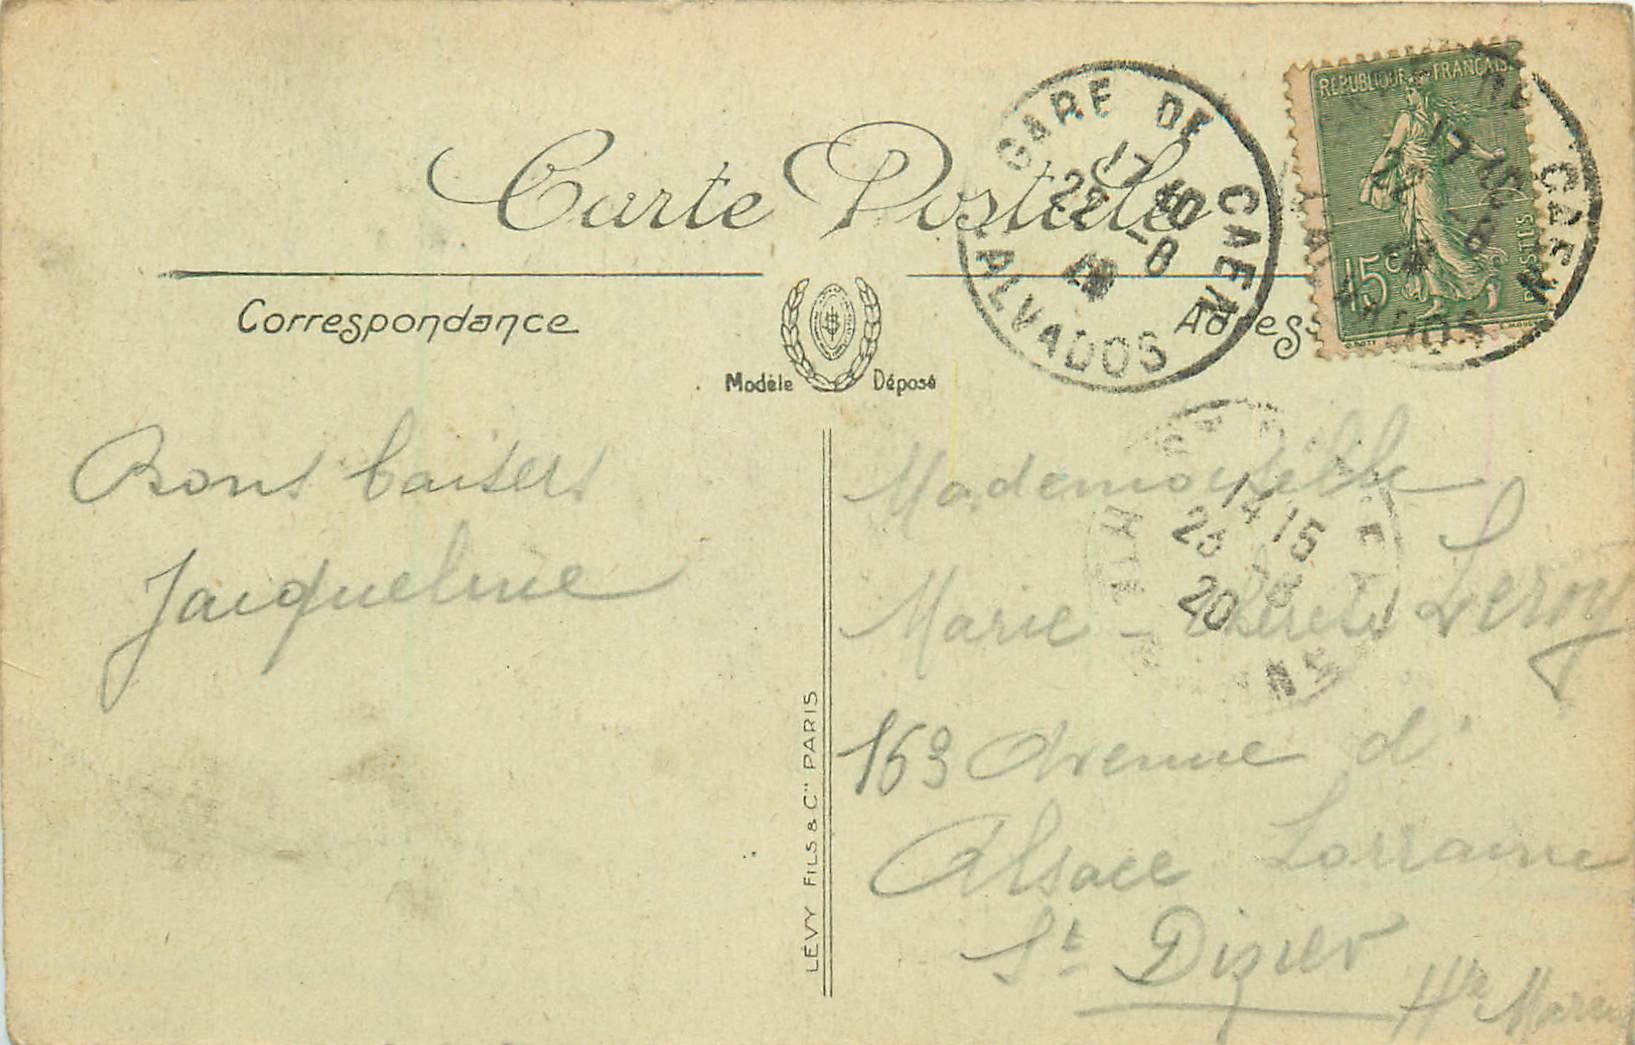 Carte Postale
Correspondance
Adresse
Modèle Déposé
REPUBLIQUE FRANÇAISE
15c
POSTES
GARE DE CAEN
CALVADOS
17 45
22 -8
Bons baisers
Jacqueline
Mademoiselle
Marie-Thérèse Leroy
163 Avenue d'
Alsace Lorraine
St Dizier
Hte Marne
14 15
23 8
20
LEVY FILS & Cie PARIS